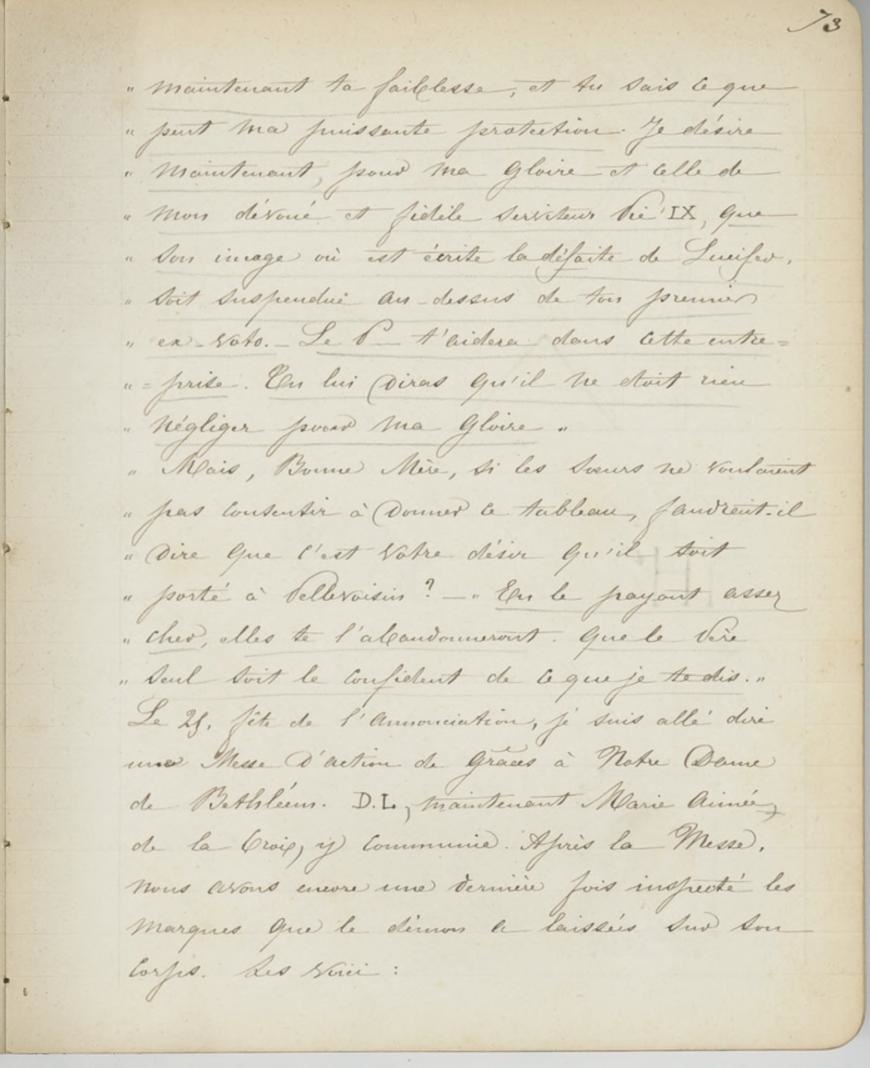 73
" maintenant ta faiblesse, et tu sais ce que
" peut ma puissante protection. Je désire
" maintenant, pour ma gloire et celle de
" mon dévoué et fidèle serviteur Pie IX, que
" son image où est écrite la défaite de Lucifer,
" soit suspendue au-dessus de ton premier
" ex-voto. – Le P— t'aidera dans cette entre=
" =prise. Tu lui diras qu'il ne doit rien
" négliger pour ma gloire. "
" Mais, Bonne Mère, si les Sœurs ne voulaient
" pas consentir à donner ce tableau, faudrait-il
" dire que c'est votre désir qu'il soit
" porté à Pellevoisin ? – " En le payant assez
" cher, elles te l'abandonneront. Que le Père
" seul soit le confident de ce que je te dis. "
Le 25, fête de l'Annonciation, je suis allé dire
une Messe d'action de grâces à Notre Dame
de Bethléem. D. L, maintenant Marie Aimée,
de la Croix, y communie. Après la Messe,
nous avons encore une dernière fois inspecté les
marques que le démon a laissées sur son
corps. Les voici :